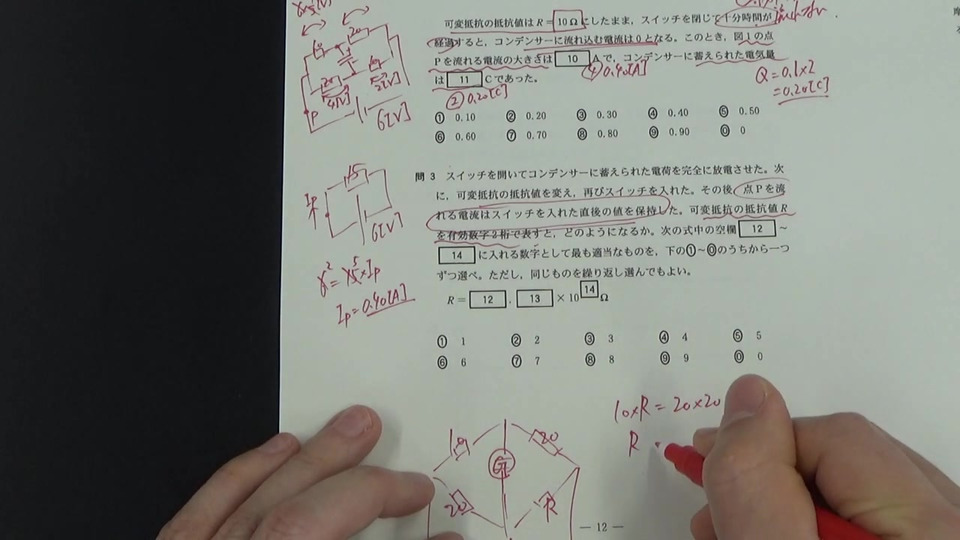 可変抵抗の抵抗値は R = 10 Ω にしたまま，スイッチを閉じて十分時間が
経過すると，コンデンサーに流れ込む電流は0となる。このとき，図1の点
Pを流れる電流の大きさは 10 Aで，コンデンサーに蓄えられた電気量
は 11 Cであった。
④ 0.40[A]
② 0.20[C]
Q = 0.1×2
= 0.20[C]
① 0.10 ② 0.20 ③ 0.30 ④ 0.40 ⑤ 0.50
⑥ 0.60 ⑦ 0.70 ⑧ 0.80 ⑨ 0.90 ⓪ 0
問3 スイッチを開いてコンデンサーに蓄えられた電荷を完全に放電させた。次
に，可変抵抗の抵抗値を変え，再びスイッチを入れた。その後，点Pを流
れる電流はスイッチを入れた直後の値を保持した。可変抵抗の抵抗値R
を有効数字2桁で表すと，どのようになるか。次の式中の空欄 12 ～
14 に入れる数字として最も適当なものを，下の①～⓪のうちから一つ
ずつ選べ。ただし，同じものを繰り返し選んでもよい。
R = 12 . 13 × 10 14 Ω
① 1 ② 2 ③ 3 ④ 4 ⑤ 5
⑥ 6 ⑦ 7 ⑧ 8 ⑨ 9 ⓪ 0
P
6[V]
15
Ip
6[V]
Ip = 0.40[A]
10×R = 20×20
R
10
20
20
R
— 12 —